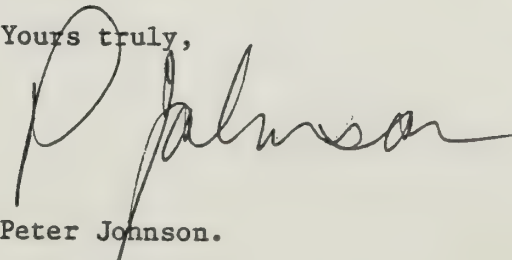 Yours truly,
P Johnson
Peter Johnson.